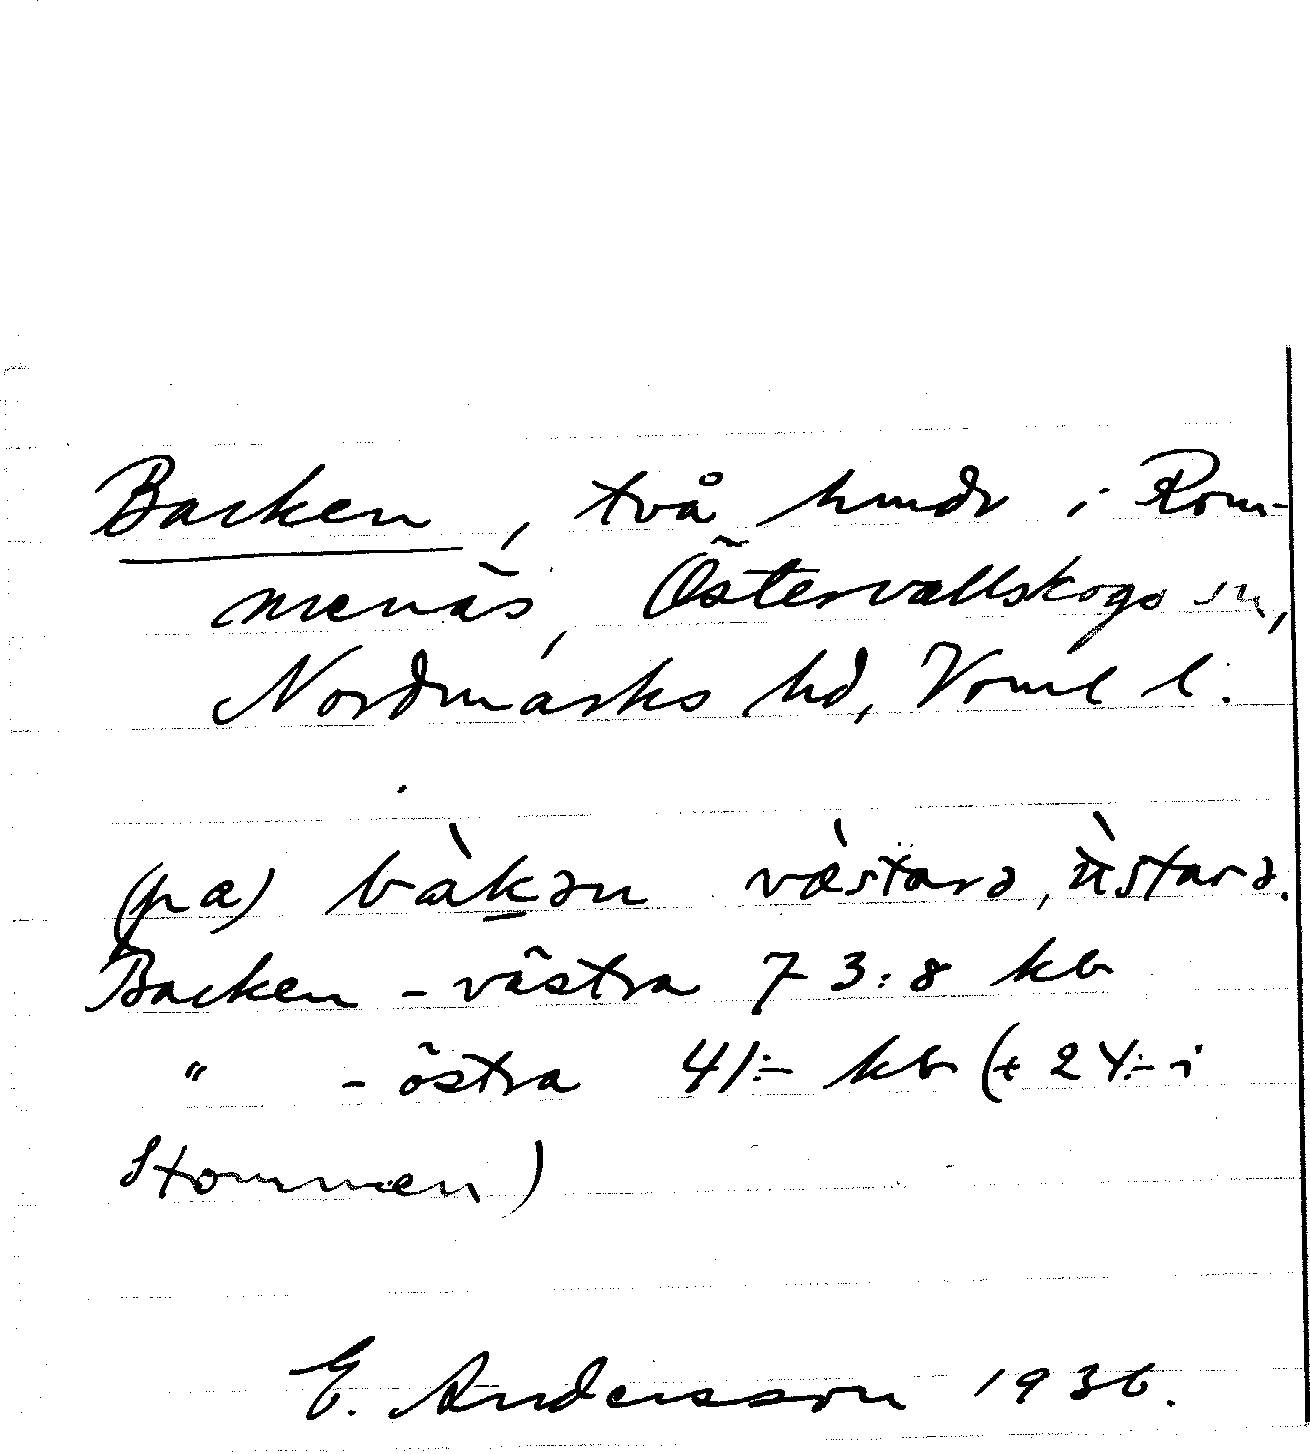 Backen, två hmdr i Rom-
menäs, Östervallskogs sn,
Nordmarks hd, Vrml l.
(pa) bàkən væ̀starə, ùstarə.
Backen - västra 73:8 kb
" - östra 41:- kb (+ 24:- i
Stommen)
E. Andersson 1936.